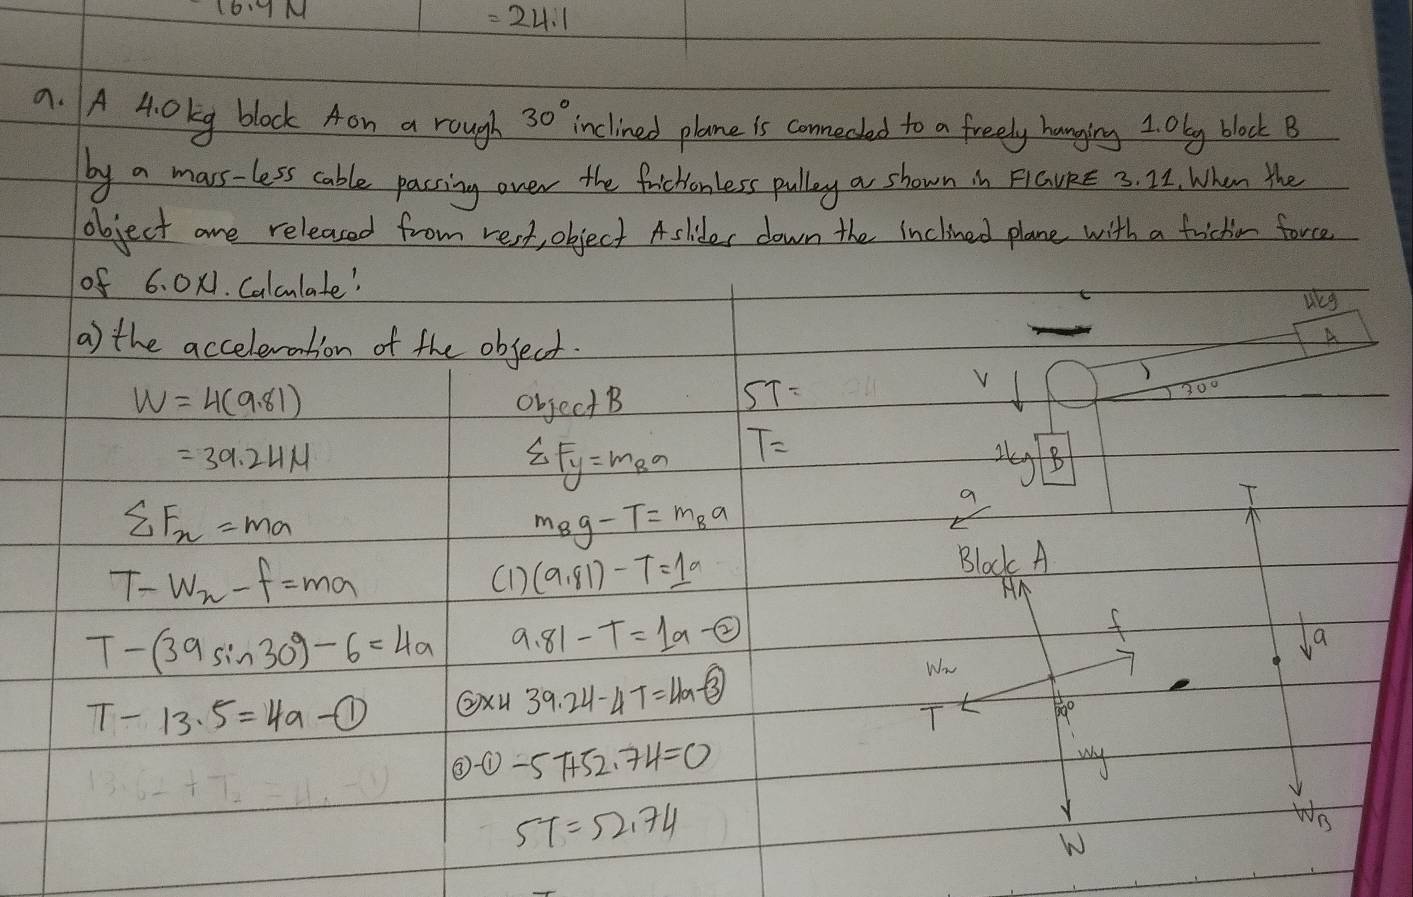 16.9N
= 24.1
9. A 4.0kg block A on a rough 30° inclined plane is connected to a freely hanging 1.0kg block B
by a mass-less cable passing over the frictionless pulley as shown in FIGURE 3.11. When the
object are released from rest, object A slides down the inclined plane with a friction force
of 6.0N. Calculate:
a) the acceleration of the object.
W = 4(9.81)
= 39.24N
ΣFx = ma
T - Wx - f = ma
T - (39 sin 30) - 6 = 4a
T - 13.5 = 4a - ①
Object B
ΣFy = mBa
mBg - T = mBa
(1)(9.81) - T = 1a
9.81 - T = 1a - ②
②x4 39.24 - 4T = 4a - ③
③-① -5T+52.74=0
5T = 52.74
5T =
T =
4kg
A
30°
V
1kg
B
a
Block A
N
f
Wx
T
30°
Wy
W
T
a
WB